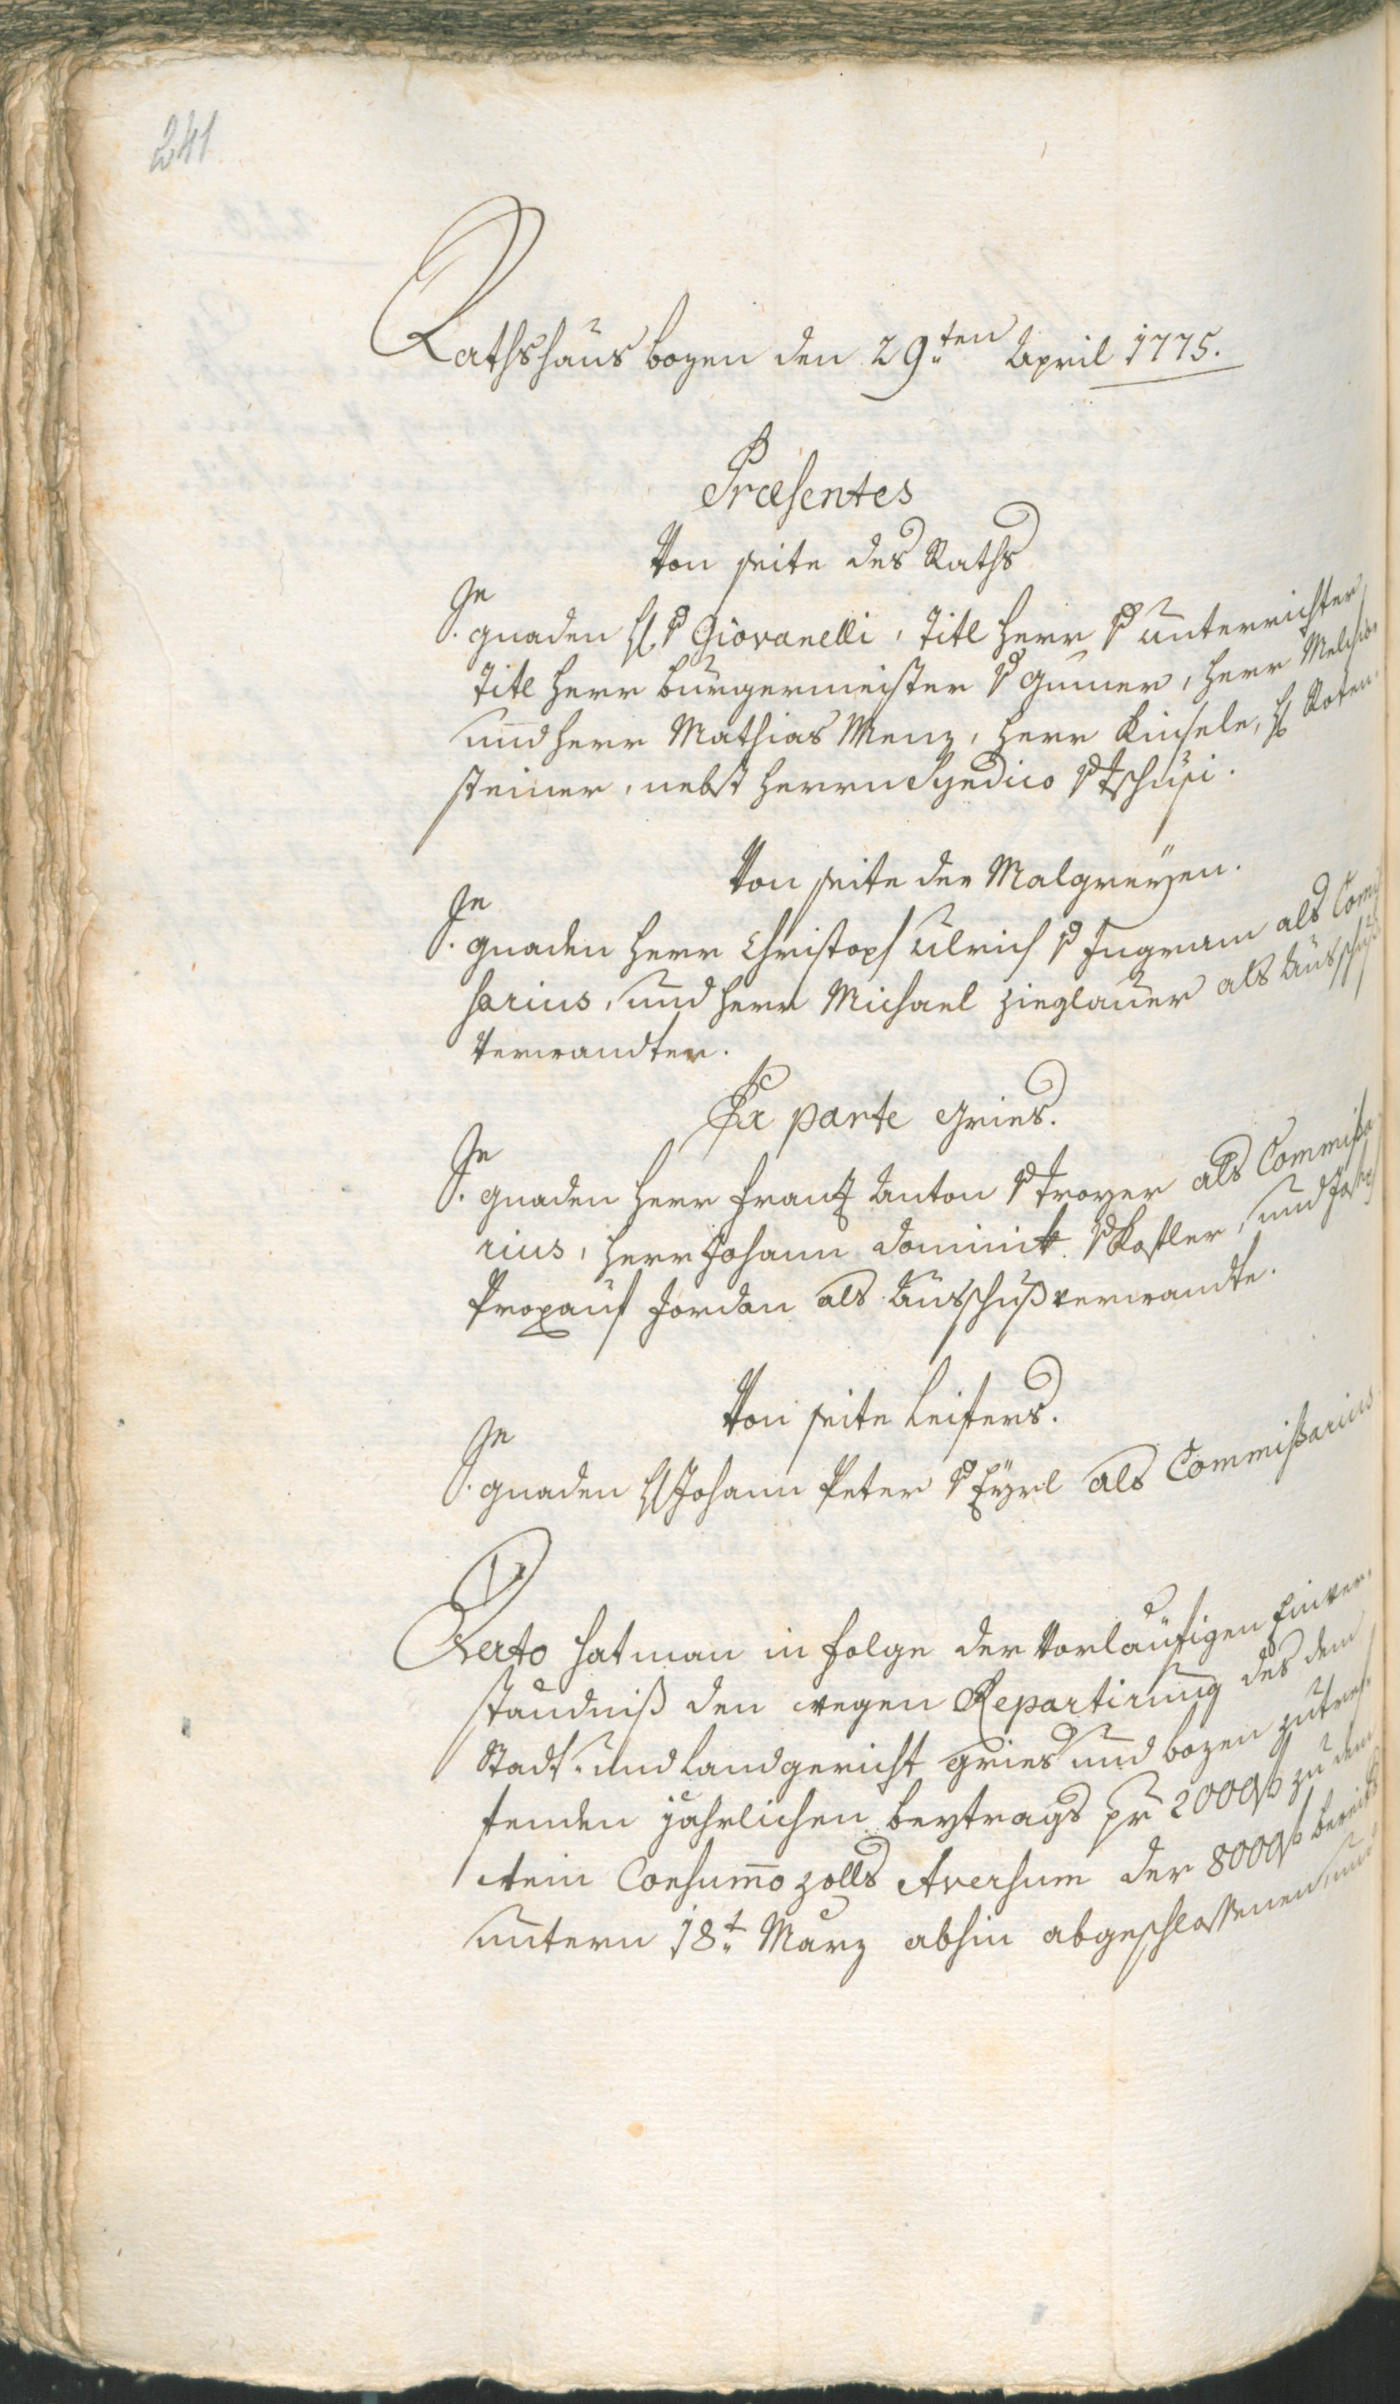 241
Rathshaus bozen den 29.ten April 1775.
Præsentes
Von seite des Raths
Se
gnaden H. v Giovanelli, Titl herr v unterrichter
Titl herr burgermeister v gumer, herr Melchior
und herr Mathias Menz, herr Kinsele, H Roten-
steiner, nebst herrn Syndico v Tschusi.
Von seite der Malgreyen.
Se
gnaden herr Christoph Ulrich v Ingram als Comi
sarius, und herr Michael zieglauer als Ausschuß
verwandter.
Ex parte gries.
Se
gnaden herr Franz Anton v Troyer als Commißa
rius, herr Johann Dominik v Kofler, und
Propauf Jordan als Ausschußverwandte.
Von seite Leifers.
Se
gnaden H Johann Peter v Eyrl als Commißarius
Dato hat man in folge der vorlaufigen Einver-
ständniß den wegen Repartirung des dem
Stadt- und Landgericht gries und bozen zutref-
fenden jährlichen beytrags pr 2000f zu dem
Consumo zolls Aversum der 8000f bereits
untern 18.t Marz abhin abgeschlossenen, und